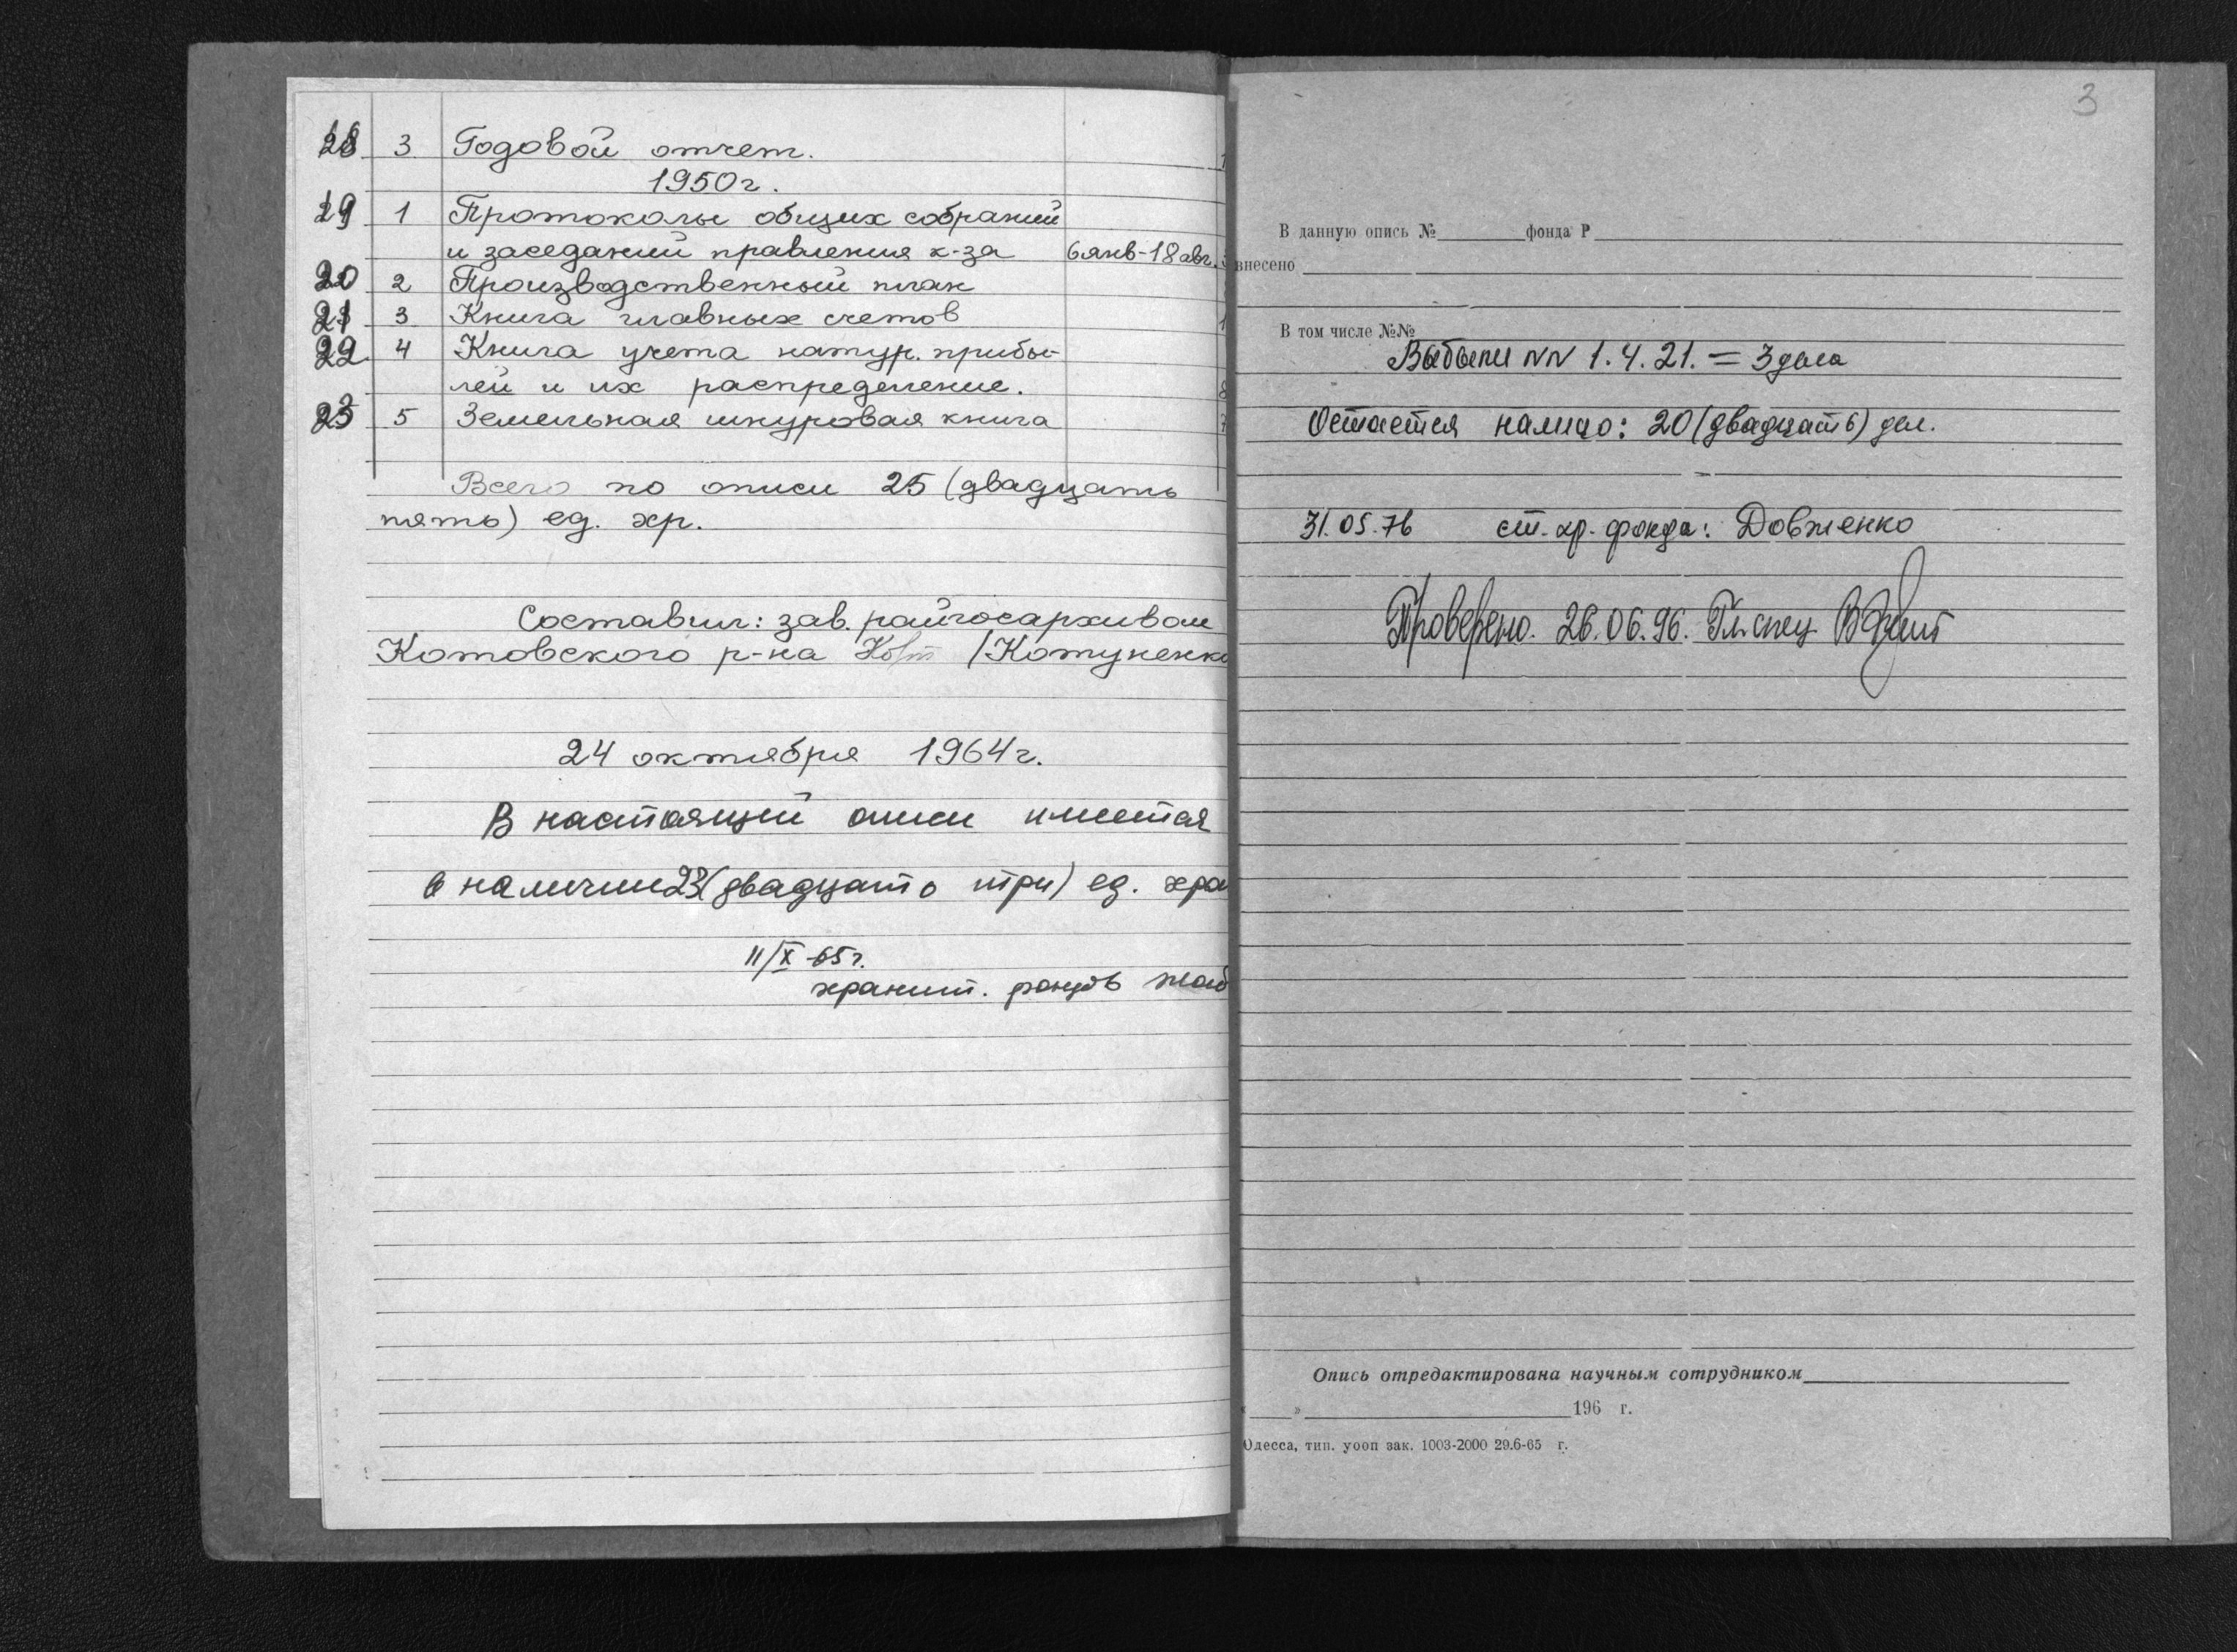 18 3 Годовой отчет.
1950 г.
19 1 Протоколы общих собраний
и заседаний правления к-за 6 янв-18 авг.
20 2 Производственный план
21 3 Книга главных счетов
22 4 Книга учета натур. прибы-
лей и их распределение.
23 5 Земельная шнуровая книга
Всего по описи 25 (двадцать
пять) ед. хр.
Составил: зав. райгосархивом
Котовского р-на /Котуненко
24 октября 1964 г.
В настоящей описи имеется
в наличии 23 (двадцать три) ед. хра
11/X-65 г.
хранит. фондов
3
В данную опись № фонда Р
внесено
В том числе №№
Выбыли NN 1. 4. 21. = 3 дела
Остается налицо: 20 (двадцать) дел.
31.05.76 ст. хр. фонда: Довженко
Проверено. 26.06.96. Гл. спец.
Опись отредактирована научным сотрудником
« » 196 г.
Одесса, тип. уооп зак. 1003-2000 29.6-65 г.